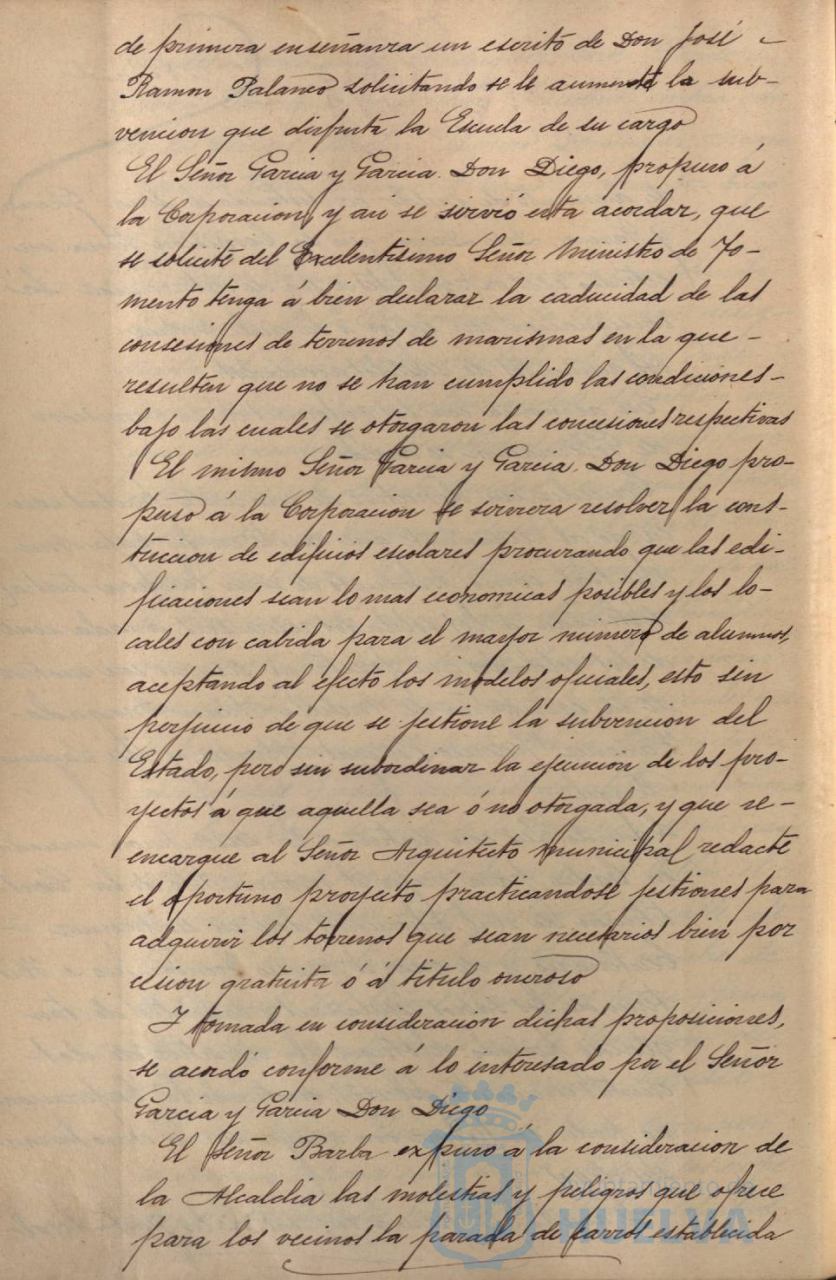 de primera enseñanza un escrito de Don José -
Ramon Palanco solicitando se le aumente la sub-
vencion que disfruta la Escuela de su cargo
El Señor Garcia y Garcia. Don Diego, propuso á
la Corporacion, y asi se sirvió esta acordar, que
se solicite del Excelentisimo Señor Ministro de Fo-
mento tenga á bien declarar la caducidad de las
consesiones de terrenos de marismas en la que -
resulten que no se han cumplido las condiciones -
bajo las cuales se otorgaron las concesiones respectivas
El mismo Señor Garcia y Garcia. Don Diego pro-
puso á la Corporacion se sirviera resolver la cons-
truccion de edificios escolares procurando que las edi-
ficaciones sean lo mas economicas posibles y los lo-
cales con cabida para el mayor número de alumnos,
aceptando al efecto los modelos oficiales, esto sin
perjuicio de que se jestione la subvencion del
Estado, pero sin subordinar la ejecucion de los pro-
yectos á que aquella sea ó no otorgada, y que se -
encargue al Señor Arquitecto municipal redacte
el oportuno proyecto practicandose jestiones para
adquirir los terrenos que sean necesarios bien por
cesion gratuita ó á titulo oneroso
I tomada en consideracion dichas proposiciones,
se acordó conforme á lo interesado por el Señor
Garcia y Garcia Don Diego
El Señor Barba expuso á la consideracion de
la Alcaldia las molestias y peligros que ofrece
para los vecinos la parada de carros establecida
Ayuntamiento de
HUELVA